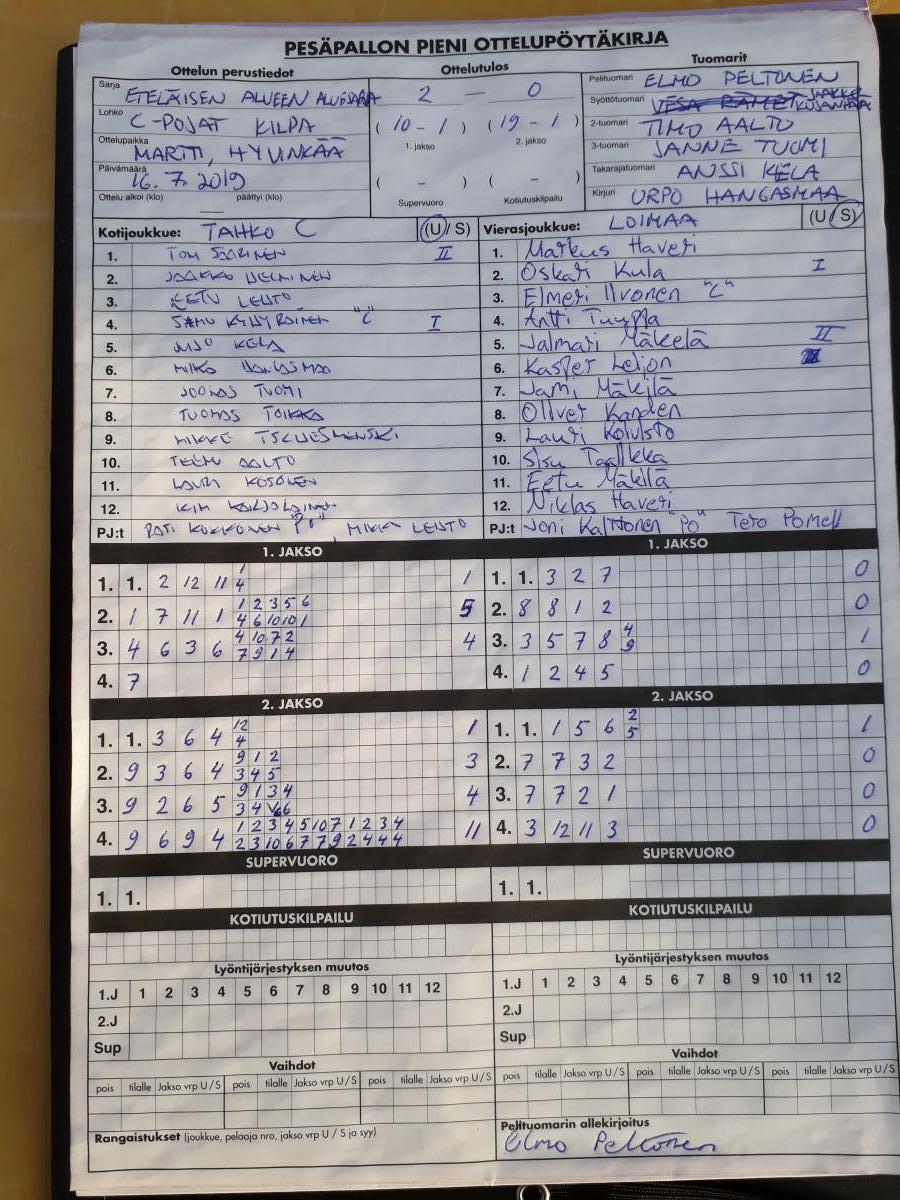 PESÄPALLON PIENI OTTELUPÖYTÄKIRJA
Ottelun perustiedot Ottelutulos Tuomarit
Sarja ETELÄISEN ALUEEN
Lohko C-POJAT KILPA
Ottelupaikka MARTTI, HYVINKÄÄ
Päivämäärä 16.7.2019
Ottelu alkoi (klo) päättyi (klo)
2 — 0
(10 - 1) (19 - 1)
1. jakso 2. jakso
( - ) ( - )
Supervuoro Kotiutuskilpailu
Pelituomari ELMO PELTONEN
Syöttötuomari JAAKKO KUJANPÄÄ
2-tuomari TIMO AALTO
3-tuomari JANNE TUOMI
Takarajatuomari ANSSI KELA
Kirjuri URPO HANGASMAA
Kotijoukkue: TAHKO C (U/ S)
1. TOMI SAARINEN II
2. JAAKKO
3. EETU LEHTO
4. SAMU "C" I
5. KELA
6.
7. JOONAS TUOMI
8. TUOMAS TOIKKA
9. MIKKE
10. TEEMU AALTO
11. LAURI KOSONEN
12. KIM
PJ:t KOKKONEN "PJ", MIKA LEHTO
Vierasjoukkue: LOIMAA (U/ S)
1. Markus Haveri
2. Oskari Kula I
3. Elmeri Ilvonen "C"
4. Antti Tuuppa
5. Jalmari Mäkelä II
6. Kasper Leijon
7. Jami Mäkilä
8. Oliver Kanden
9. Lauri Koivisto
10. Sisu Taalikka
11. Eetu Mäkilä
12. Niklas Haveri
PJ:t Joni Kalttonen "PO" Tero Pomell
1. JAKSO
1. 1. 2 12 11 1 4 1
2. 1 7 11 1 1 2 3 5 6 5
4 6 10 10 1
3. 4 6 3 6 4 10 7 2 4
7 9 1 4
4. 7
1. JAKSO
1. 1. 3 2 7 0
2. 8 8 1 2 0
3. 3 5 7 8 4 9 1
4. 1 2 4 5 0
2. JAKSO
1. 1. 3 6 4 12 4 1
2. 9 3 6 4 9 1 2 3
3 4 5
3. 9 2 6 5 9 1 3 4 4
3 4 6
4. 9 6 9 4 1 2 3 4 5 10 7 1 2 3 4 11
2 3 10 6 7 7 9 2 4 4 4
2. JAKSO
1. 1. 1 5 6 2 5 1
2. 7 7 3 2 0
3. 7 7 2 1 0
4. 3 12 11 3 0
SUPERVUORO
1. 1.
SUPERVUORO
1. 1.
KOTIUTUSKILPAILU
KOTIUTUSKILPAILU
Lyöntijärjestyksen muutos
1.J 1 2 3 4 5 6 7 8 9 10 11 12
2.J
Sup
Lyöntijärjestyksen muutos
1.J 1 2 3 4 5 6 7 8 9 10 11 12
2.J
Sup
Vaihdot
pois tilalle Jakso vrp U/S pois tilalle Jakso vrp U/S pois tilalle Jakso vrp U/S
Vaihdot
pois tilalle Jakso vrp U/S pois tilalle Jakso vrp U/S pois tilalle Jakso vrp U/S
Rangaistukset (joukkue, pelaaja nro, jakso vrp U / S ja syy)
Pelituomarin allekirjoitus
Elmo Peltonen